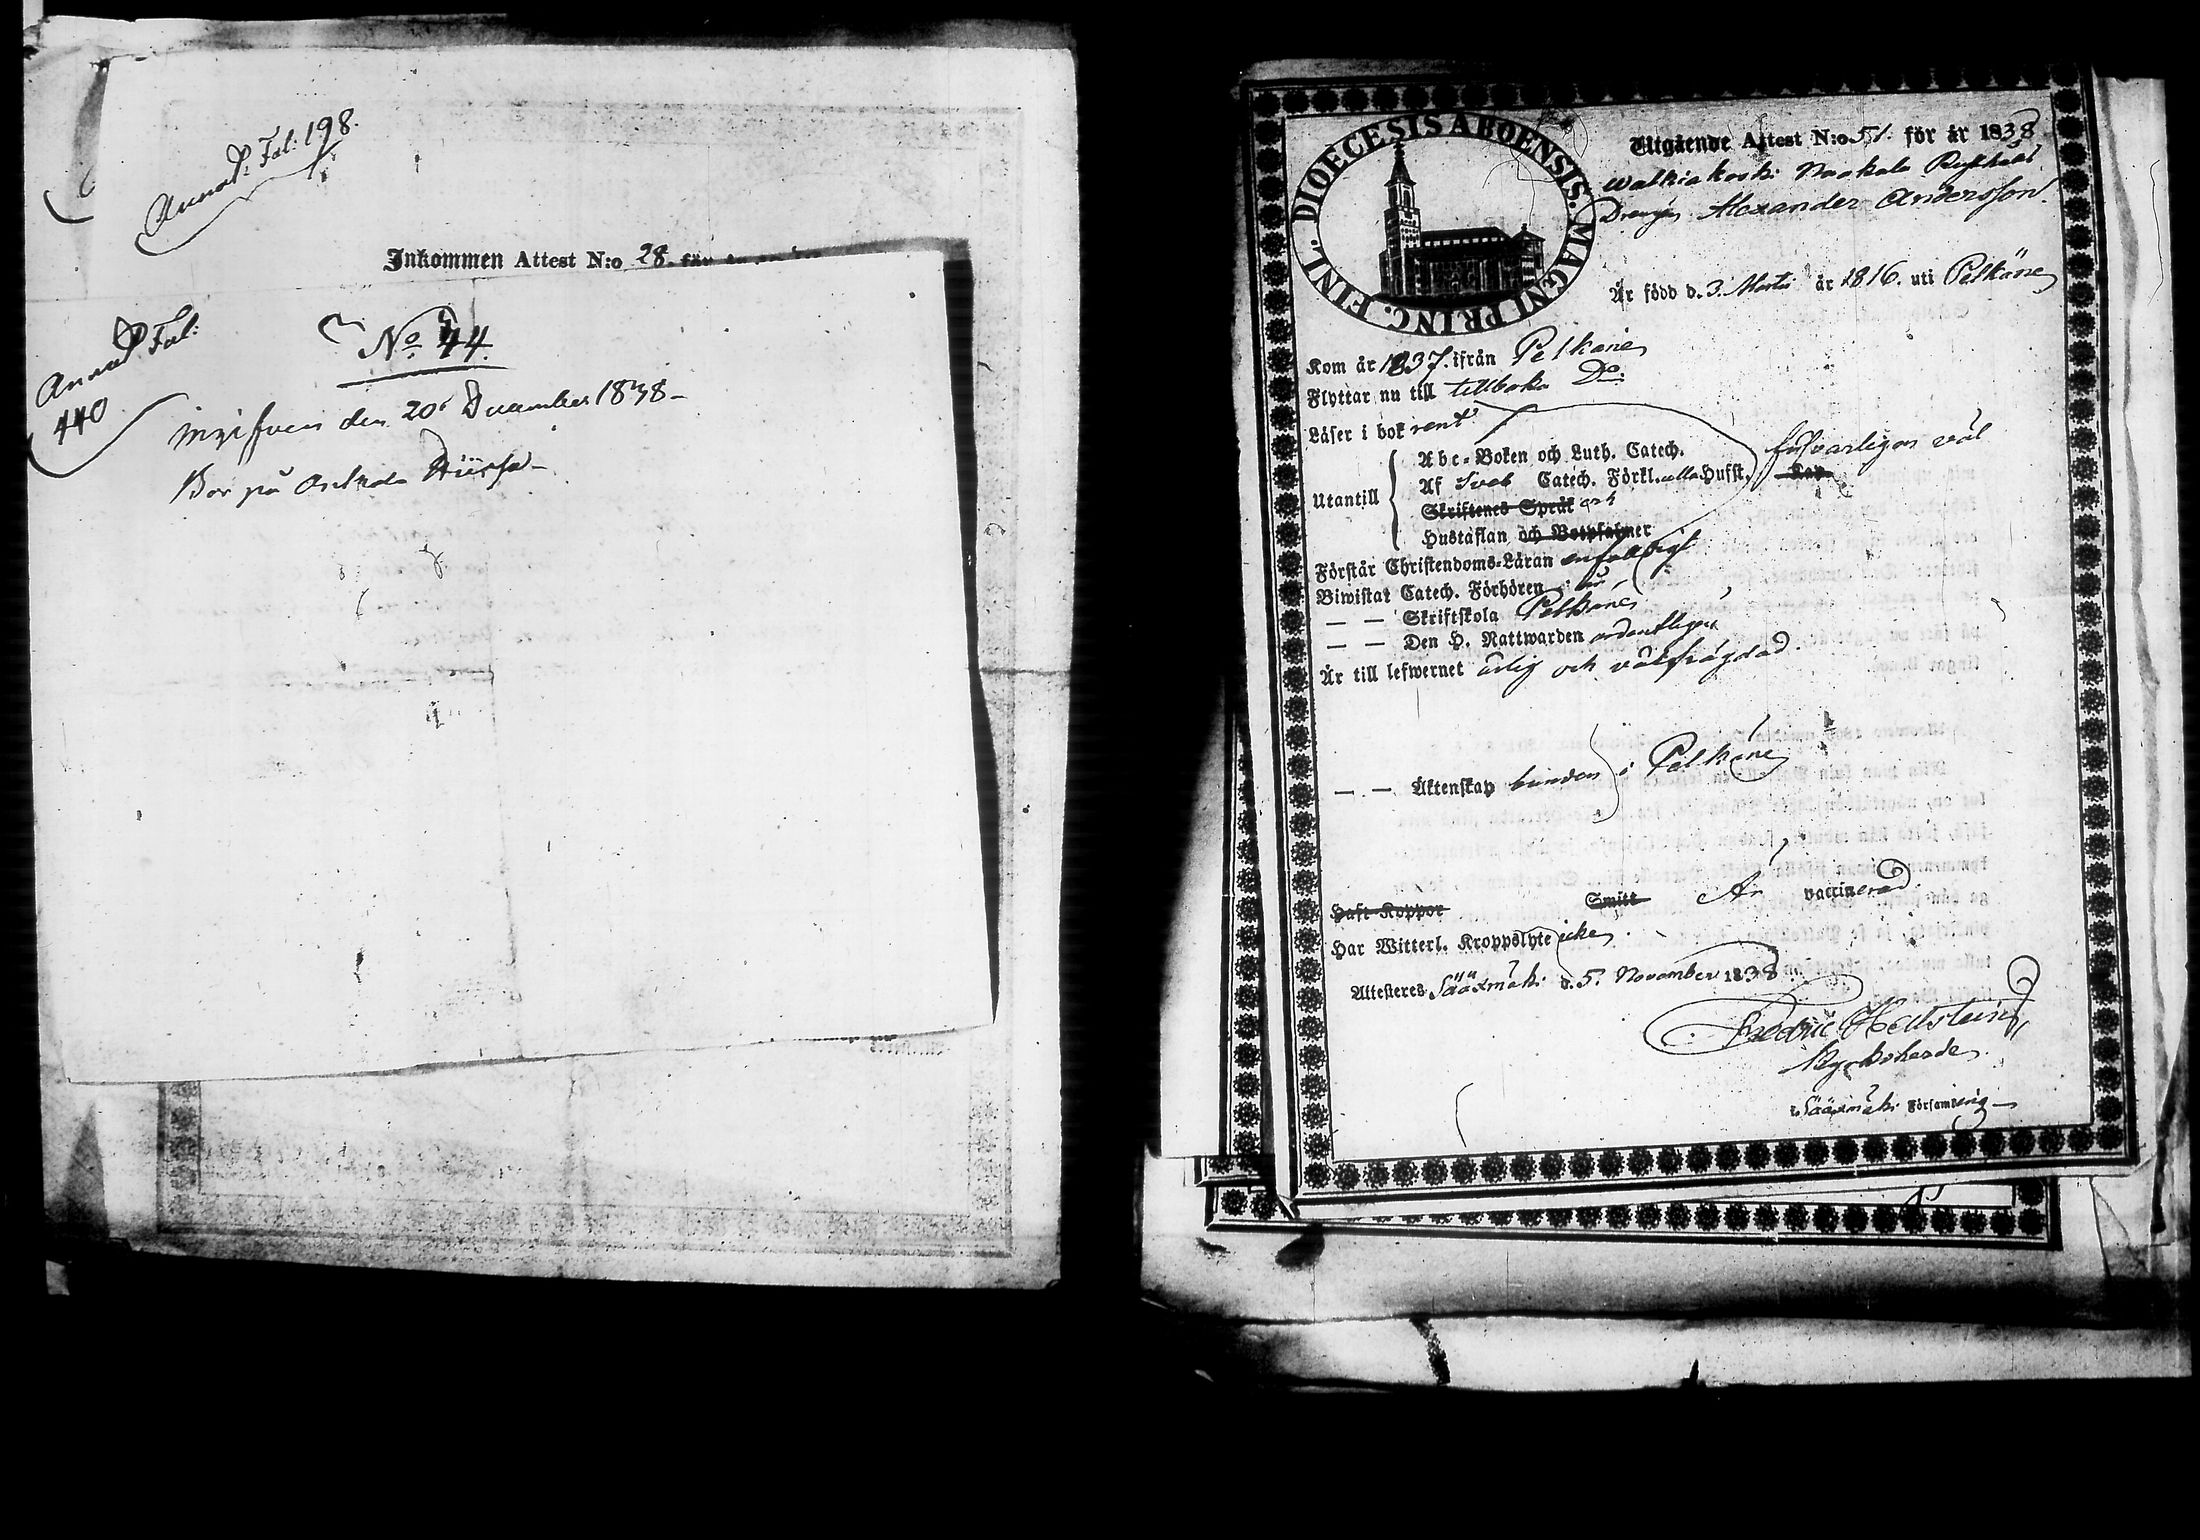 Annot. Fol: 198.
Inkommen Attest N:o 28. för
Annot. Fol:
440
No. 44.
ingifven den 20 December 1838 –
Bor på Onkala
DIOECESIS ABOENSIS. MAGNI PRINC. FINL.
Utgående Attest N:o 51. för år 1838
Walkiakoski Naakala Rusthåll
Drengen Alexander Andersson.
Är född d. 3. Martii år 1816. uti Pelkäne
Kom år 1837. ifrån Pelkäne
Flyttar nu till tillbaka Do.
Läser i bok rent
Utantill
Abc-Boken och Luth. Catech.
Af Sveb Catech. Förkl. alla Hufst. försvarligen väl
Skriftenes Språk och
Hustaflan och Botpsalmer
Förstår Christendoms-Läran enfaldigt
Biwistat Catech. Förhören
— — Skriftskola Pelkäne
— — Den H. Nattwarden ordentligen
Är till lefwernet ärlig och välfrägdad.
— — Äktenskap bunden i Pelkäne
Haft Koppor Smitt Är vaccinerad.
Har Witterl. Kroppslyte icke.
Attesteras Sääxmäki d. 5. November 1838
Fredric Hellstein
Kyrkoherde
i Sääxmäki Församling